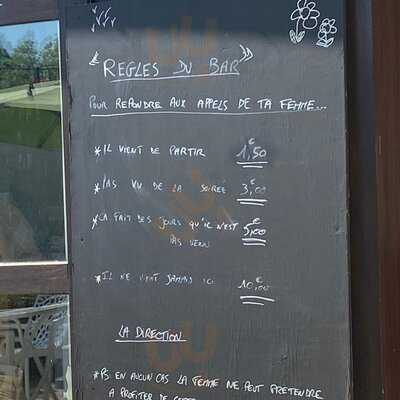 "REGLES DU BAR"
POUR REPONDRE AUX APPELS DE TA FEMME...
*IL VIENT DE PARTIR 1,50€
*PAS VU DE LA SOIRÉE 3,00€
*CA FAIT DES JOURS QU'IL N'EST 5,00€
PAS VENU
*IL NE VIENT JAMAIS ICI 10,00€
LA DIRECTION
*PS EN AUCUN CAS LA FEMME NE PEUT PRETENDRE
A PROFITER DE CETTE